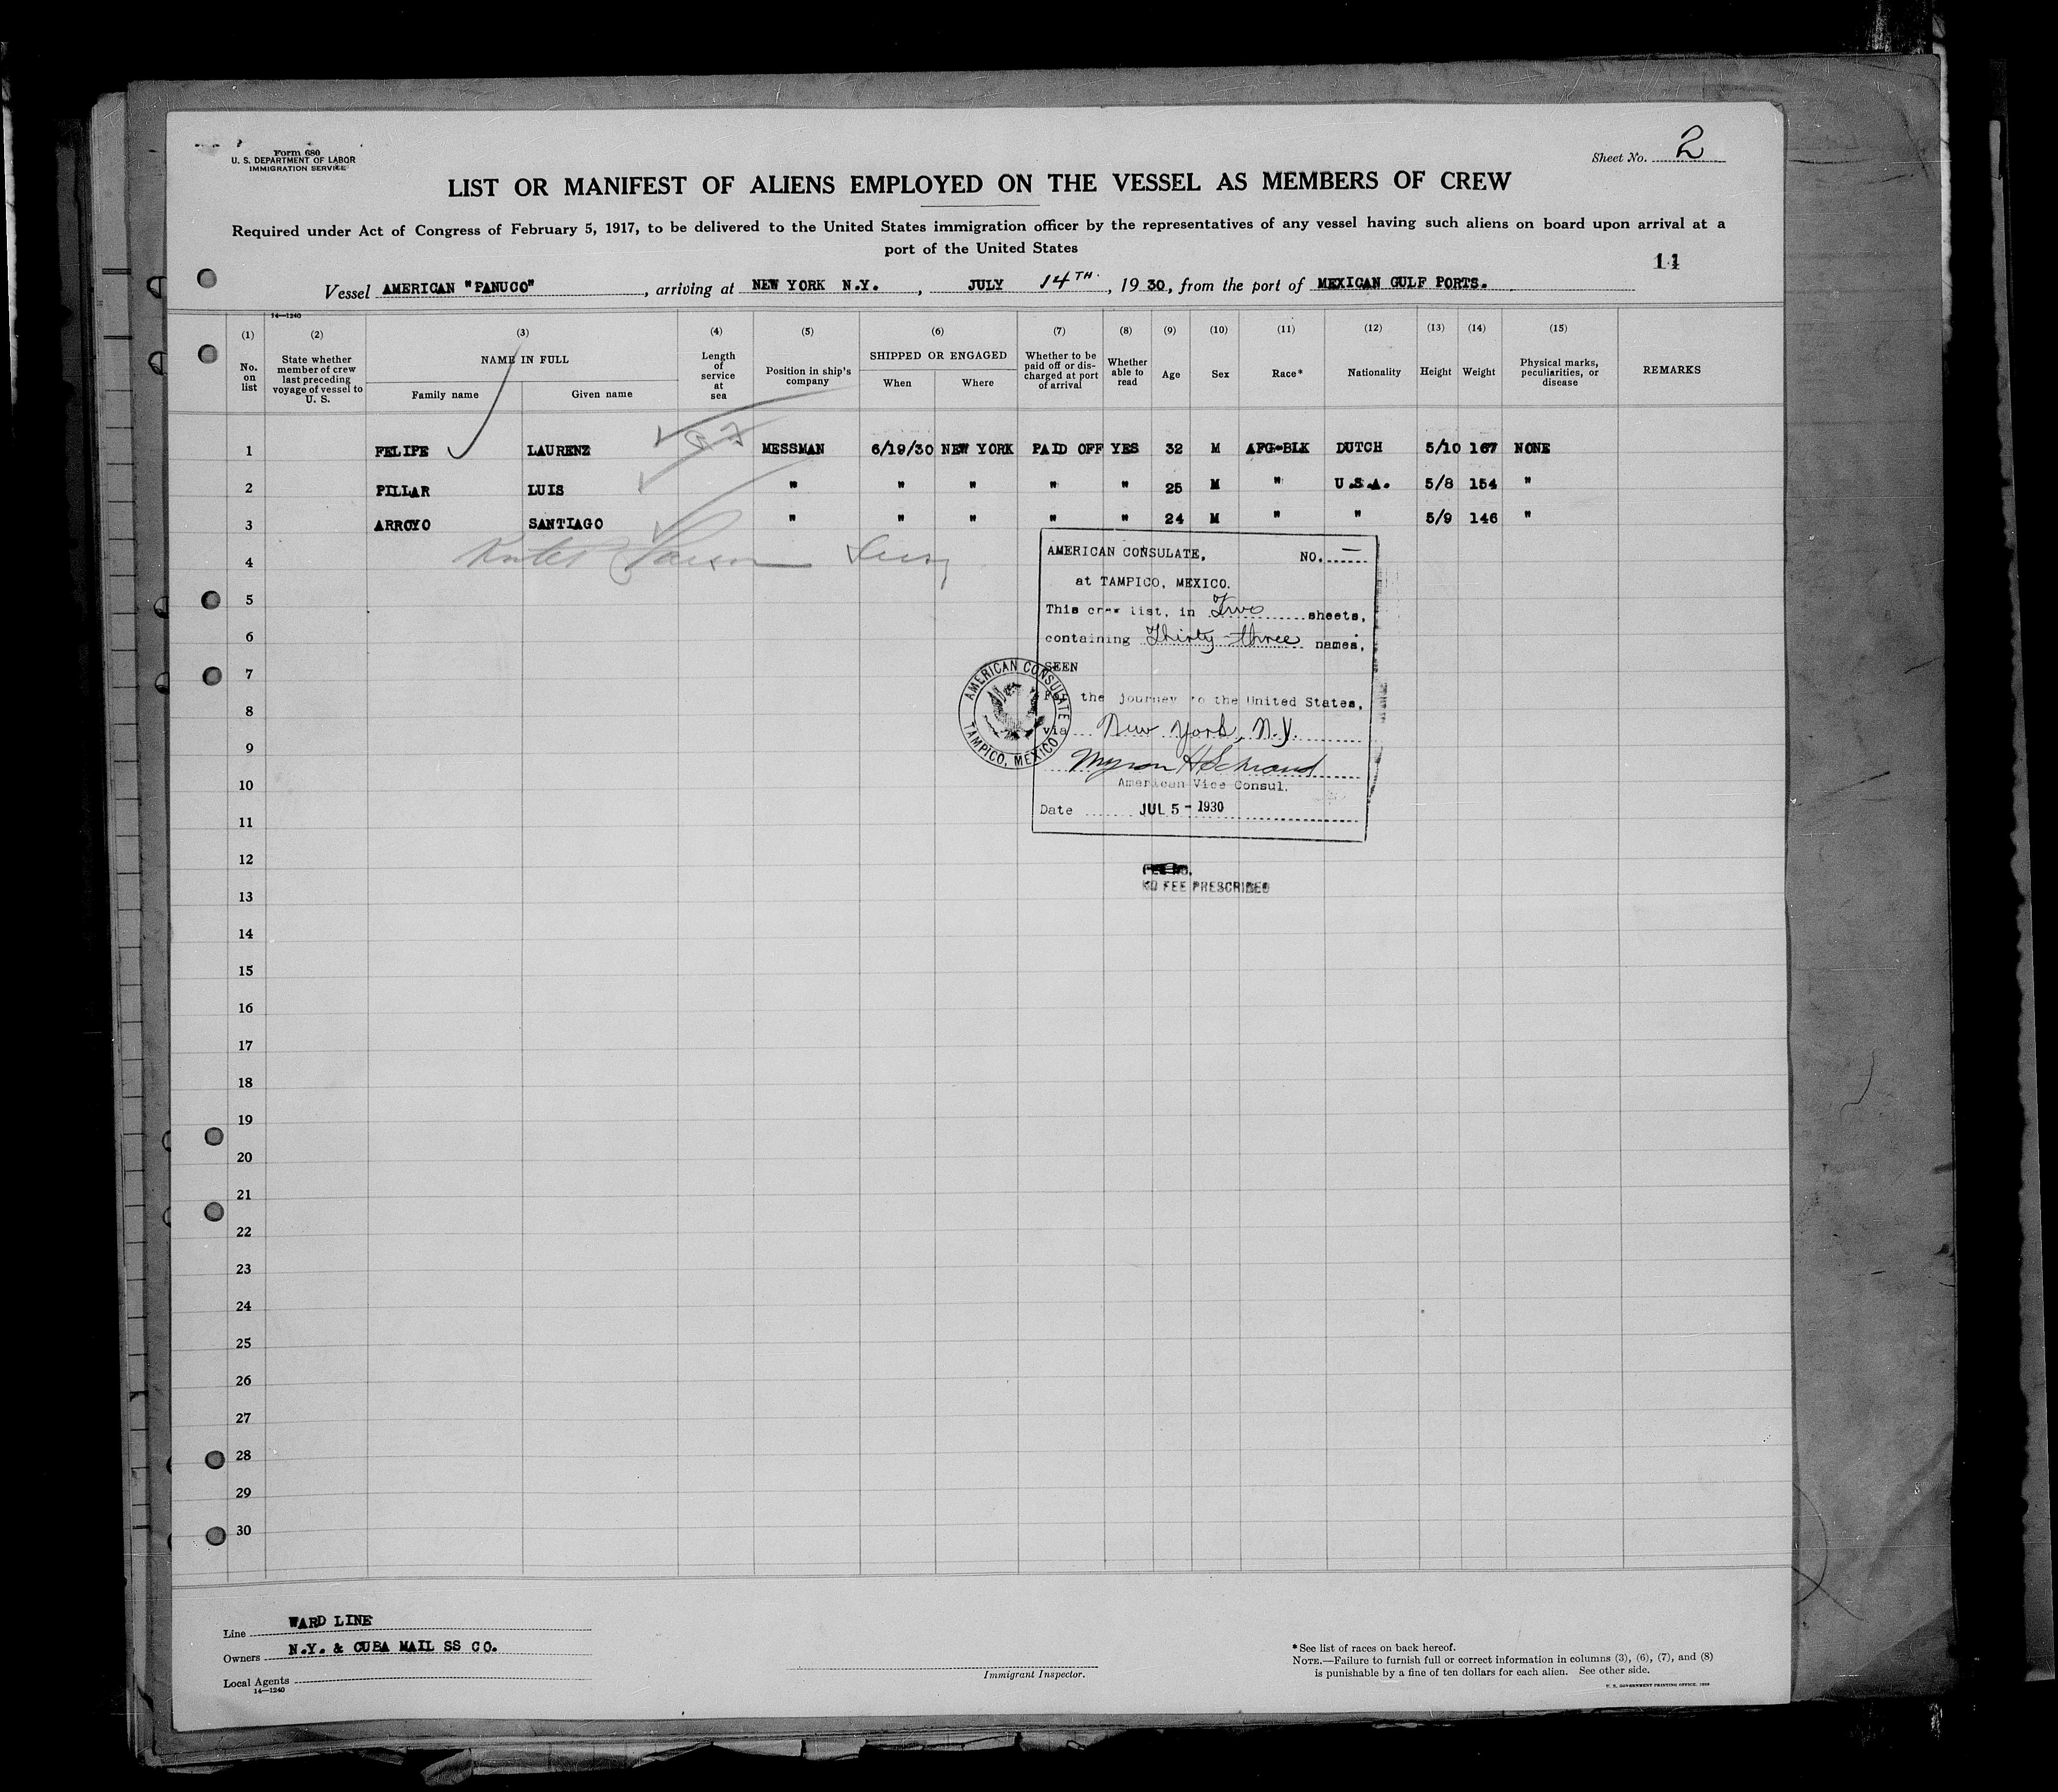 Form 680
U. S. DEPARTMENT OF LABOR
IMMIGRATION SERVICE
Sheet No. 2
LIST OR MANIFEST OF ALIENS EMPLOYED ON THE VESSEL AS MEMBERS OF CREW
Required under Act of Congress of February 5, 1917, to be delivered to the United States immigration officer by the representatives of any vessel having such aliens on board upon arrival at a
port of the United States
11
Vessel AMERICAN "PANUCO", arriving at NEW YORK N.Y., JULY 14TH., 1930, from the port of MEXICAN GULF PORTS.
14—1240
(1) (2) (3) (4) (5) (6) (7) (8) (9) (10) (11) (12) (13) (14) (15)
No. on list
State whether member of crew last preceding voyage of vessel to U. S.
NAME IN FULL
Family name
Given name
Length of service at sea
Position in ship's company
SHIPPED OR ENGAGED
When
Where
Whether to be paid off or discharged at port of arrival
Whether able to read
Age
Sex
Race*
Nationality
Height
Weight
Physical marks, peculiarities, or disease
REMARKS
1 FELIPE LAURENZ MESSMAN 6/19/30 NEW YORK PAID OFF YES 32 M AFG-BLK DUTCH 5/10 167 NONE
2 PILLAR LUIS " " " " " 25 M " U.S.A. 5/8 154 "
3 ARROYO SANTIAGO " " " " " 24 M " " 5/9 146 "
4
5
6
7
8
9
10
11
12
13
14
15
16
17
18
19
20
21
22
23
24
25
26
27
28
29
30
AMERICAN CONSULATE, NO. —
at TAMPICO, MEXICO.
This crew list, in of Two sheets,
containing Thirty-three names,
SEEN
For the journey to the United States,
via New York, N.Y.
American Vice Consul.
Date JUL 5 - 1930
AMERICAN CONSULATE
TAMPICO, MEXICO
FEE NO.
NO FEE PRESCRIBED
Line WARD LINE
Owners N.Y. & CUBA MAIL SS CO.
Local Agents
14—1240
Immigrant Inspector.
* See list of races on back hereof.
NOTE.—Failure to furnish full or correct information in columns (3), (6), (7), and (8)
is punishable by a fine of ten dollars for each alien. See other side.